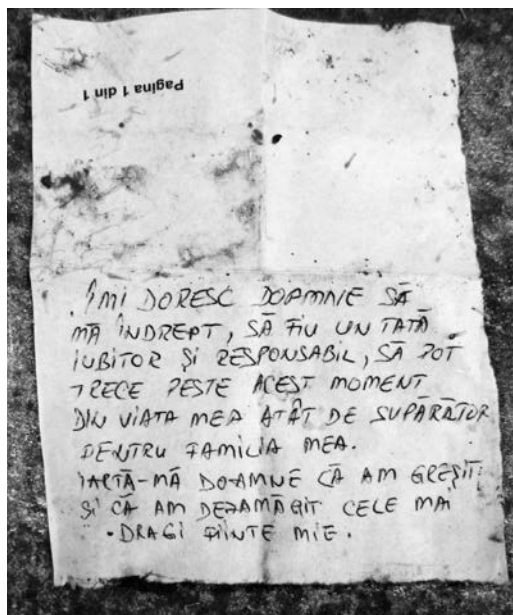 Pagina 1 din 1
ÎMI DORESC DOAMNE SĂ
MĂ ÎNDREPT, SĂ FIU UN TATĂ
IUBITOR ȘI RESPONSABIL, SĂ POT
TRECE PESTE ACEST MOMENT
DIN VIATA MEA ATÂT DE SUPĂRĂTOR
PENTRU FAMILIA MEA.
IARTĂ-MĂ DOAMNE CĂ AM GREȘIT
ȘI CĂ AM DEZAMĂGIT CELE MAI
DRAGI FIINTE MIE.